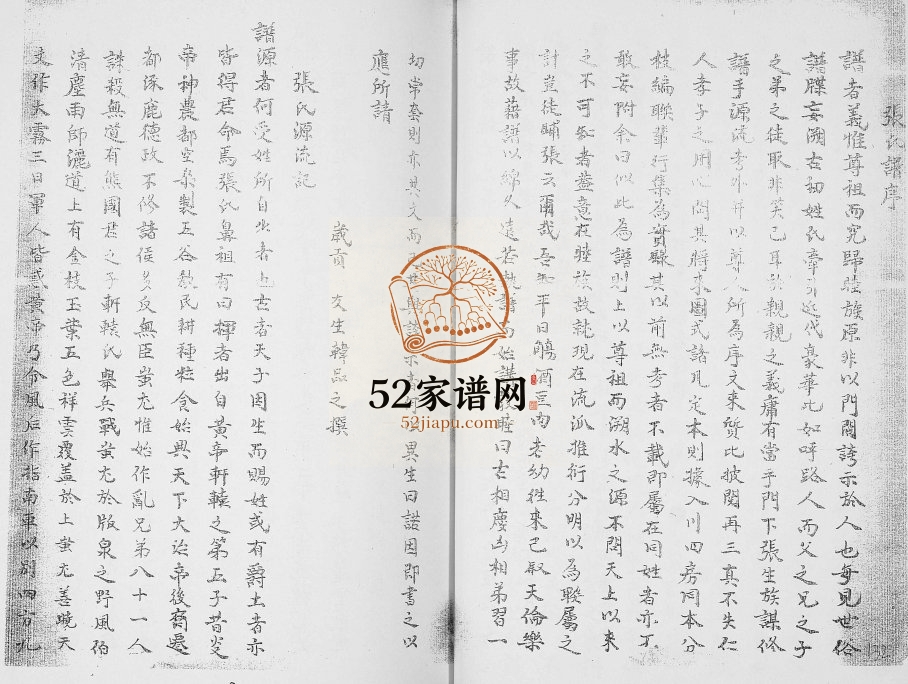 張氏譜序
譜者義惟尊祖而究歸睦族原非以門閥誇示於人也每見世俗
譜牒妄溯古初姓氏牽引近代豪華比如呼路人而父之兄之子
之弟之徒取非笑已耳於親親之義庸有當乎門下張生族謀修
譜手源流考外并以尊人所為序文來質比披閱再三真不失仁
人孝子之用心問其將來圖式諸凡定本則據入川四房同本分
枝編聯輩行集為實錄其以前無考者不載即屬在同姓者亦不
敢妄附余曰似此為譜則上以尊祖而溯水之源不問天上以來
之不可知者蓋意在睦族故就現在流派推衍分明以為聯屬之
計豈徒鋪張云爾哉吾知平日觴酒豆肉老幼往來已敘天倫樂
事故藉譜以綿久遠若說譜而始講敦睦曰古相慶凶相弔習一
切常套則亦具文而
應所請
歲貢
文生韓品之撰
張氏源流記
譜源者何受姓所自出者也古者天子因生而賜姓或有爵土者亦
皆得君命焉張氏鼻祖有曰揮者出自黃帝軒轅之第五子昔炎
帝神農都空桑製五谷教民耕種粒食始興天下大治帝後裔遷
都涿鹿德政不修諸侯多反無臣蚩尤惟始作亂兄弟八十一人
誅殺無道有熊國君之子軒轅氏舉兵戰蚩尤於版泉之野風伯
清塵雨師灑道上有金枝玉葉五色祥雲覆蓋於上蚩尤善曉天
文作大霧三日軍人皆惑黃帝乃令風后作指南車以別四方九
52家谱网
52jiapu.com